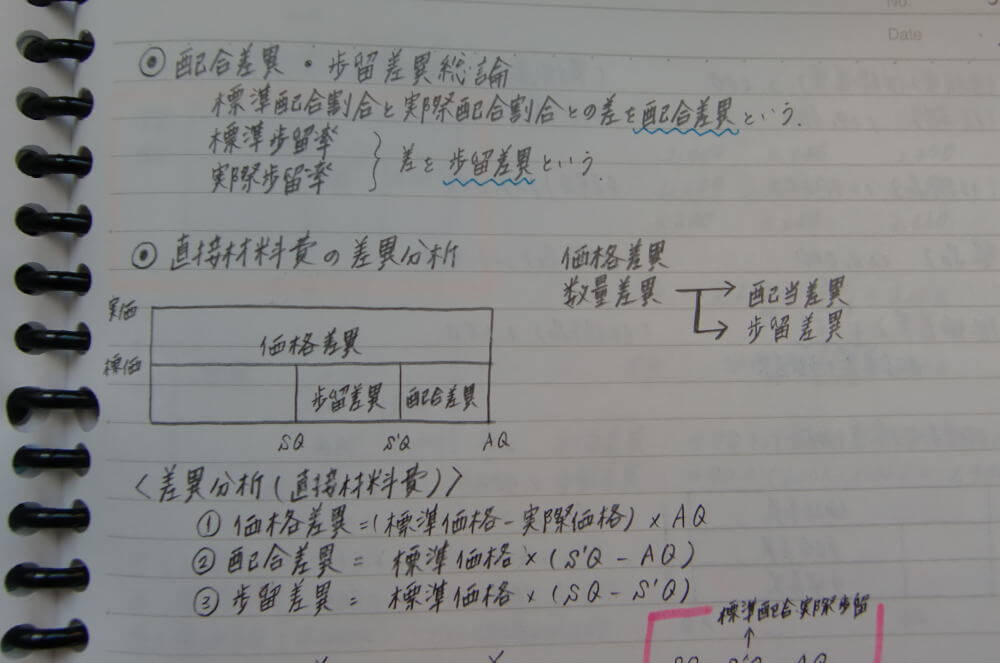 No.
Date
◉ 配合差異・歩留差異総論
標準配合割合と実際配合割合との差を配合差異という.
標準歩留率
実際歩留率 } 差を歩留差異という.
◉ 直接材料費の差異分析
価格差異
数量差異 → 配当差異
→ 歩留差異
実価
価格差異
標価
歩留差異 配合差異
SQ S'Q AQ
〈差異分析(直接材料費)〉
① 価格差異=(標準価格-実際価格)×AQ
② 配合差異= 標準価格×(S'Q-AQ)
③ 歩留差異= 標準価格×(SQ-S'Q)
標準配合実際歩留
↑
SQ S'Q AQ